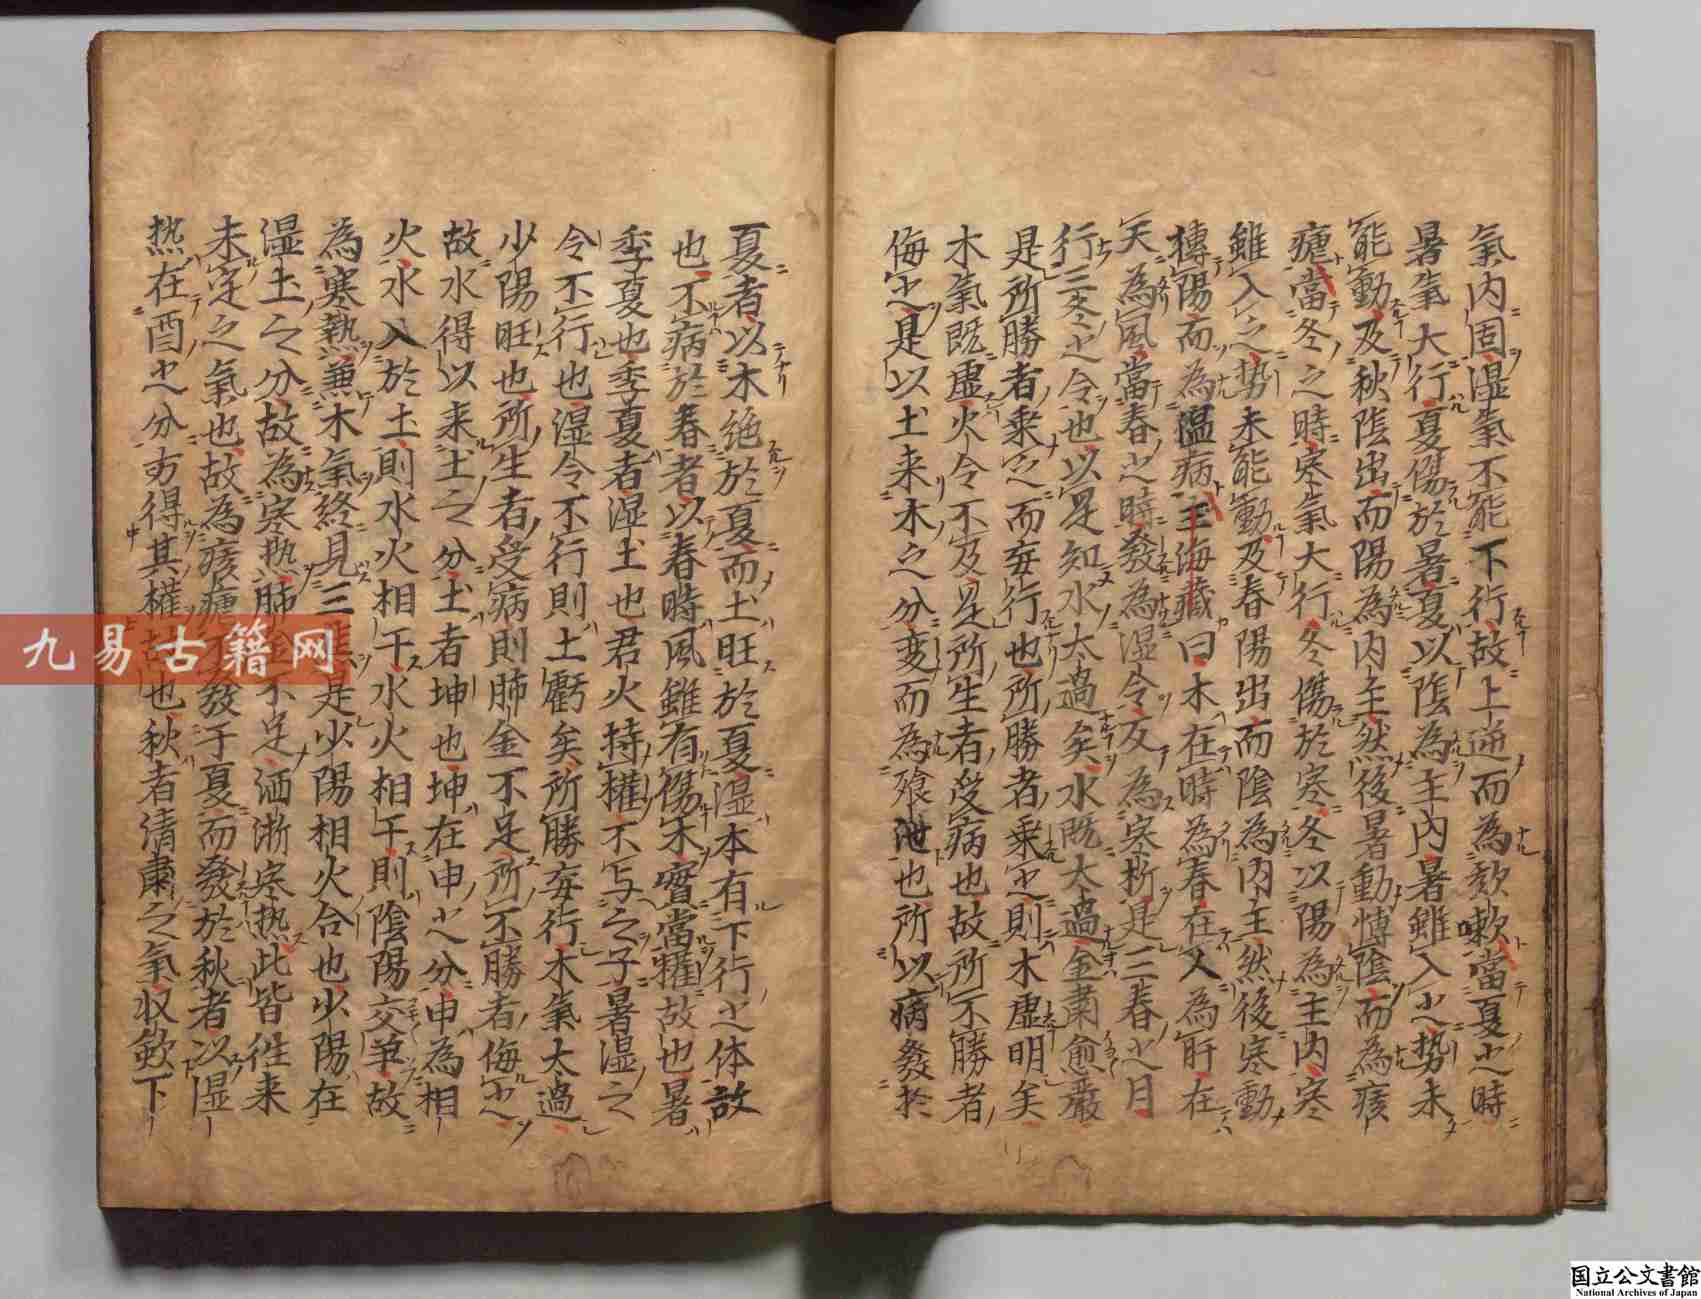 氣内固湿氣不能下行故上逆而為欬嗽當夏之時
暑氣大行夏傷於暑夏以陰為主内暑雖入之勢未
能動及秋陰出而陽為内主然後暑動慱陰而為痎
瘧當冬之時寒氣大行冬傷於寒冬以陽為主内寒
雖入之勢未能動及春陽出而陰為内主然後寒動
慱陽而為温病王海藏曰木在時為春在人為肝在
天為風當春之時發為湿令反為寒折是三春之月
行三冬之令也以是知水太過矣水既大過金肅愈嚴
是所勝者乘之而妄行也所勝者乘之則木虚明矣
木氣既虚火令不及是所生者受病也故所不勝者
侮之是以土来木之分变而為飱泄也所以病發於
夏者以木绝於夏而土旺於夏湿本有下行之体故
也不病於春者以春時風雖有傷木實當權故也暑
季夏也季夏者湿土也君火持權不与之子暑湿之
令不行也湿令不行則土虧矣所勝妄行木氣太過
少陽旺也所生者受病則肺金不足所不勝者侮之
故水得以来土之分土者坤也坤在申之分申為相
火水入於土則水火相干水火相干則陰陽交争故
為寒熱兼木氣終見三焦是少陽相火合也少陽在
湿土之分故為寒热肺金不足洒淅寒热此皆徃来
未定之氣也故為痎瘧不發于夏而發於秋者以湿
热在酉之分方得其權故也秋者清肅之氣収歛下
九易古籍网
国立公文書館
National Archives of Japan